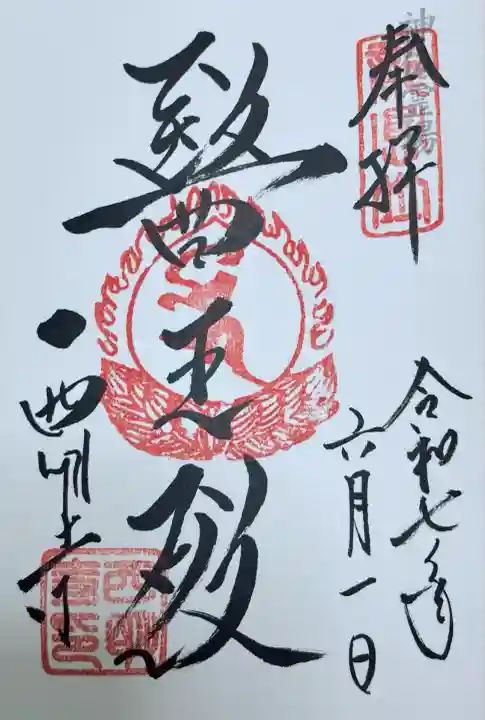 奉拝
令和七年
六月一日
醫王殿
西明寺